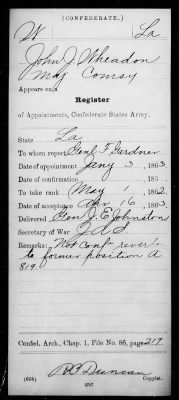 (CONFEDERATE.)
W La
John J. Wheadon
Maj Comsy
Appears on a
Register
of Appointments, Confederate States Army.
State La
To whom report Genl F. Gardner
Date of appointment Jany 3, 1863
Date of confirmation , 185
To take rank May 1, 1862
Date of acceptance Apr 16, 1863
Delivered Gen J. E. Johnston
Secretary of War J A S
Remarks: Not Conf'd revert's
to former position A
819.
Confed. Arch., Chap. 1, File No. 86, page 217
R. T. Duncan
Copyist.